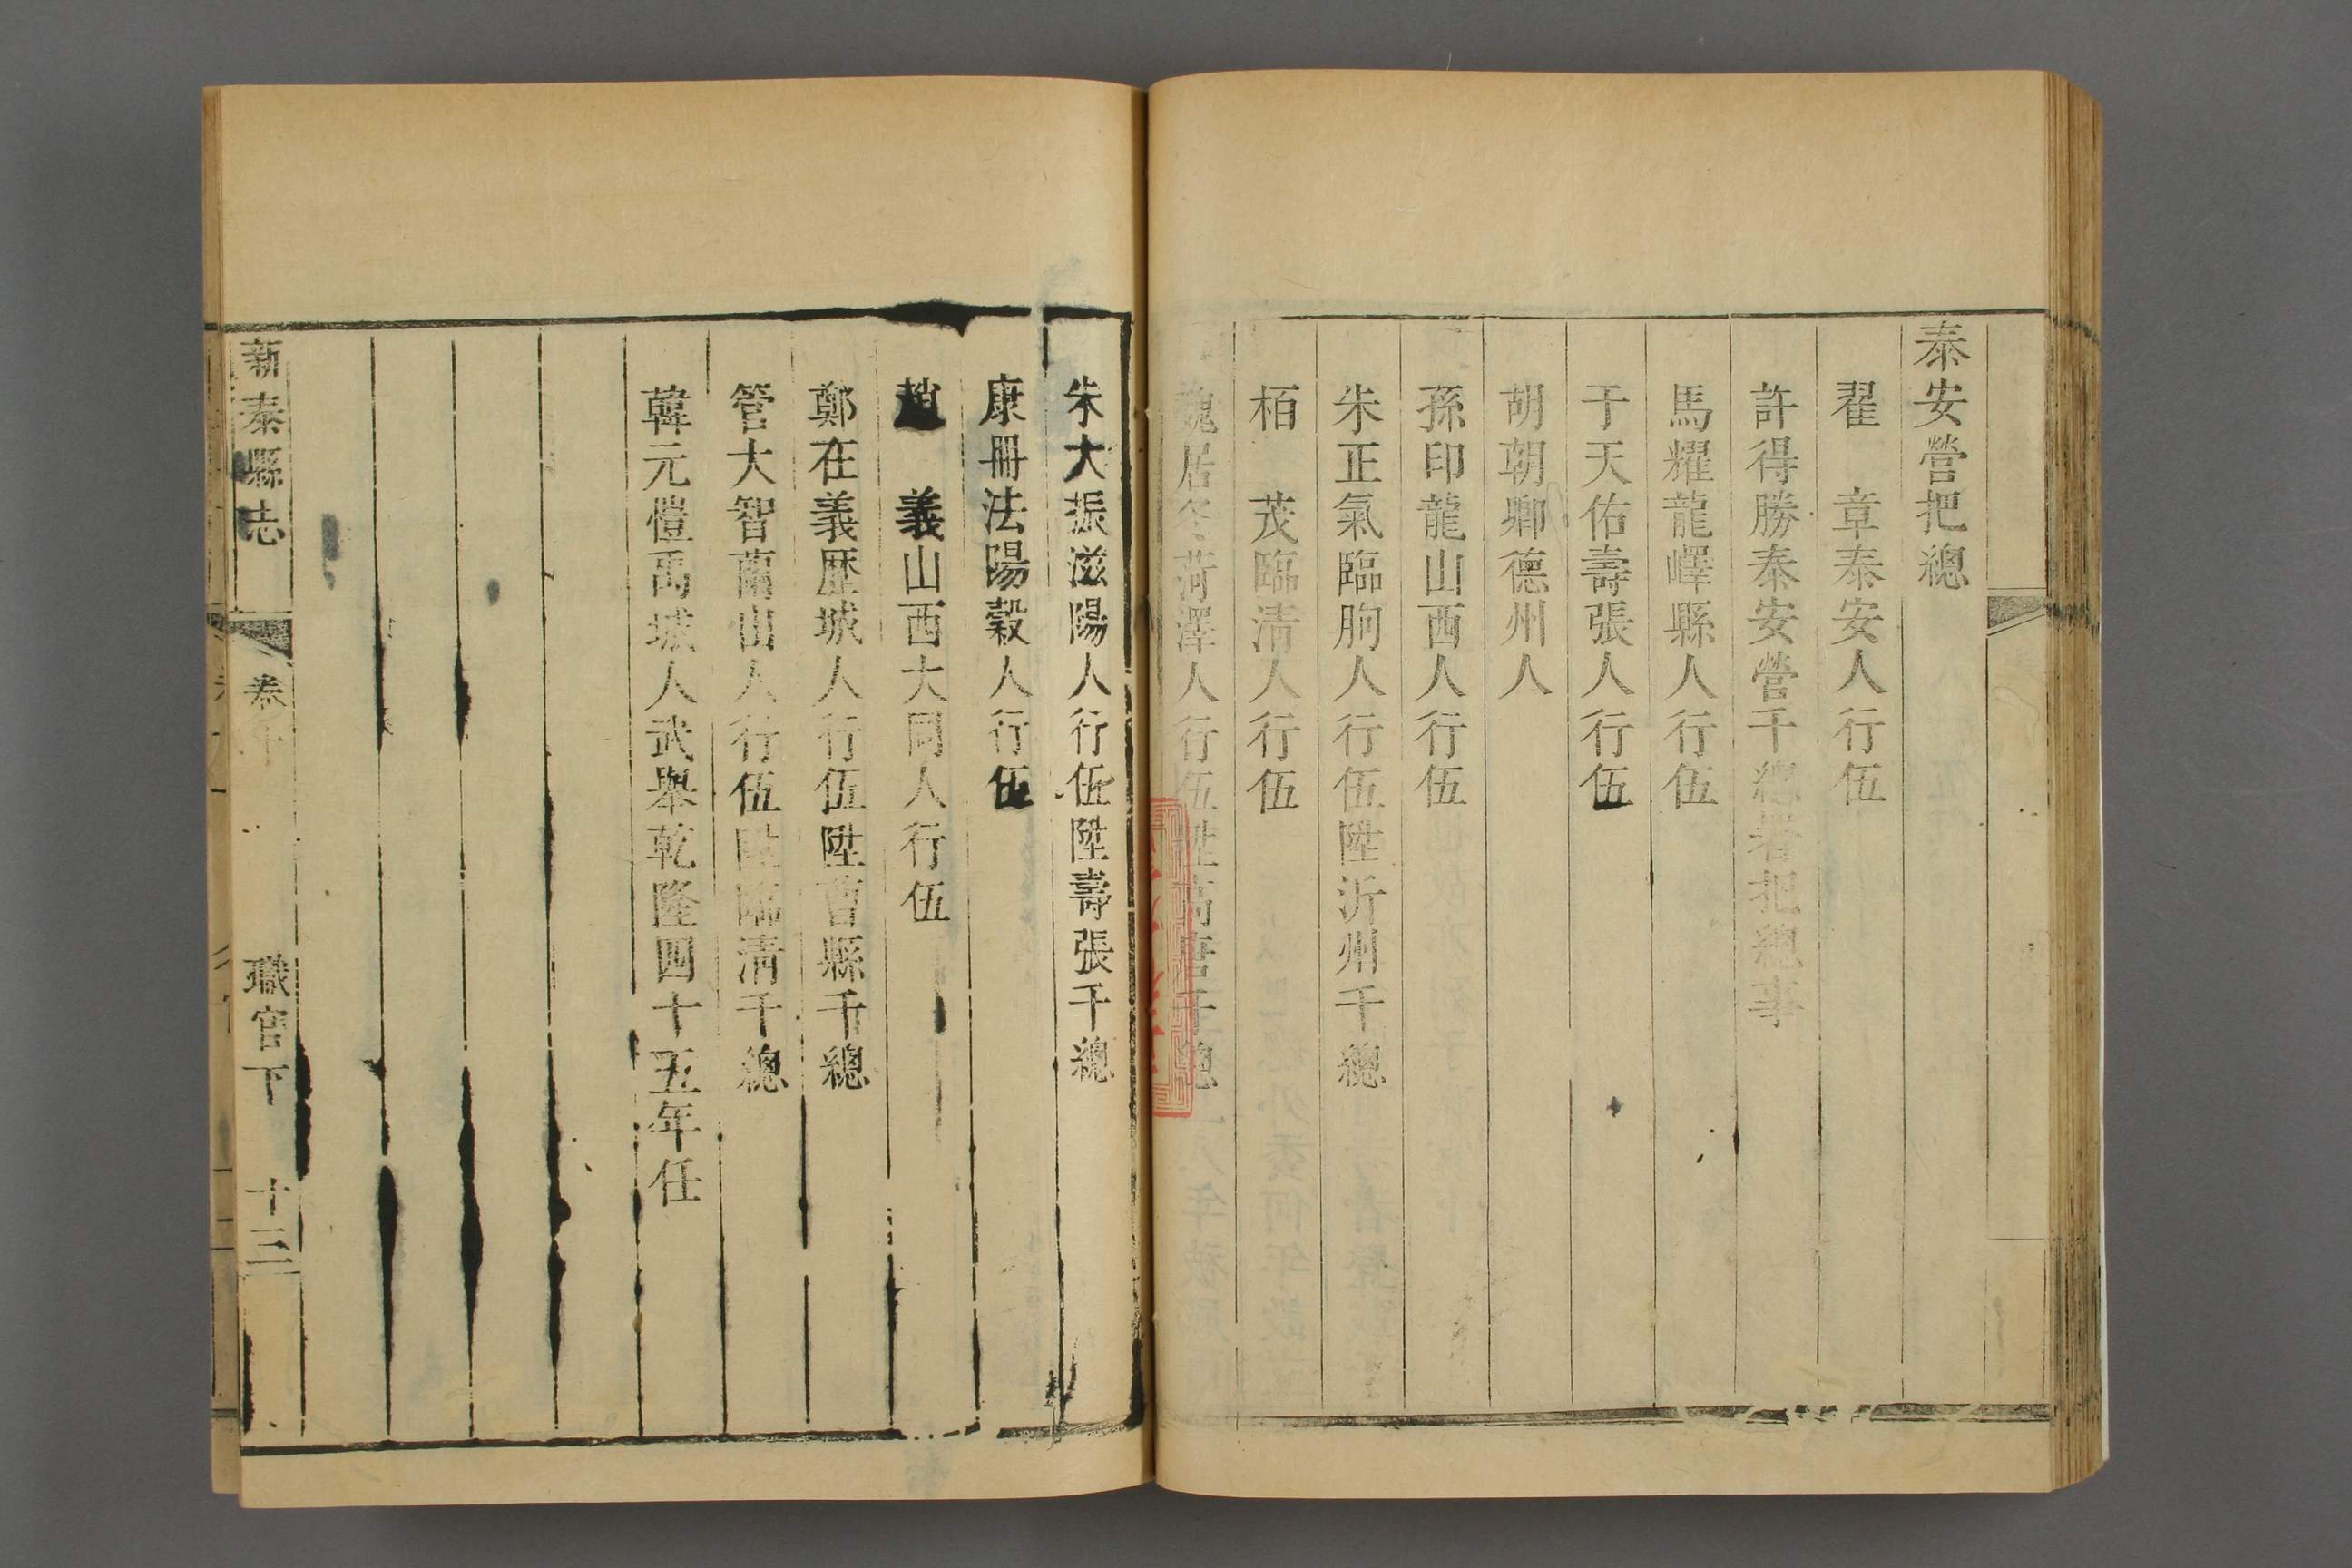 泰安營把總
翟　章泰安人行伍
許得勝泰安營千總署把總事
馬耀龍嶧縣人行伍
于天佑壽張人行伍
胡朝卿德州人
孫印龍山西人行伍
朱正氣臨朐人行伍陞沂州千總
栢　茂臨清人行伍
魏居冬菏澤人行伍陞高唐千總
朱大振滋陽人行伍陞壽張千總
康冊法陽穀人行伍
趙　義山西大同人行伍
鄭在義歷城人行伍陞曹縣千總
管大智蘭山人行伍陞臨清千總
韓元愷禹城人武舉乾隆四十五年任
新泰縣志
卷十
職官下
十三